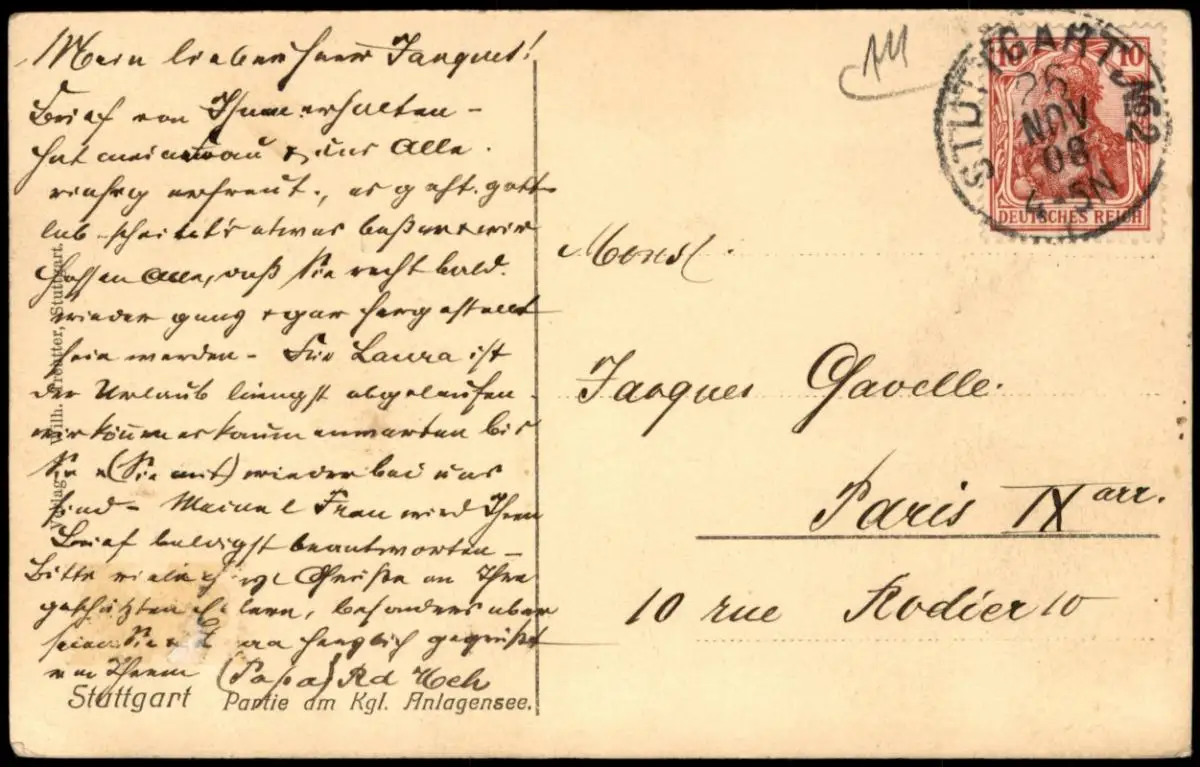 Mein lieber Herr Jacques!
Brief von Ihnen erhalten –
hat meine Frau & uns Alle
riesig erfreut., es geht gott-
lob scheint's etwas besser & wir
hoffen Alle, daß Sie recht bald
wieder ganz & gar hergestellt
sein werden – Für Laura ist
der Urlaub längst abgelaufen –
wir können es kaum erwarten bis
Sie (Sie mit) wieder bei uns
sind – Meine l Frau wird Ihren
Brief beantworten –
Bitte Grüße an Ihre
geschätzten Eltern, besonders aber
seien Sie herzlich gegrüßt
von Ihrem (Papa) Rd
Stuttgart Partie am Kgl. Anlagensee.
Verlag Wilh. Stuttgart.
STUTTGART No 2
26
NOV
08
4-5N
10 10
DEUTSCHES REICH
Monsr.
Jacques Gavelle.
Paris IX arr.
10 rue Rodier 10